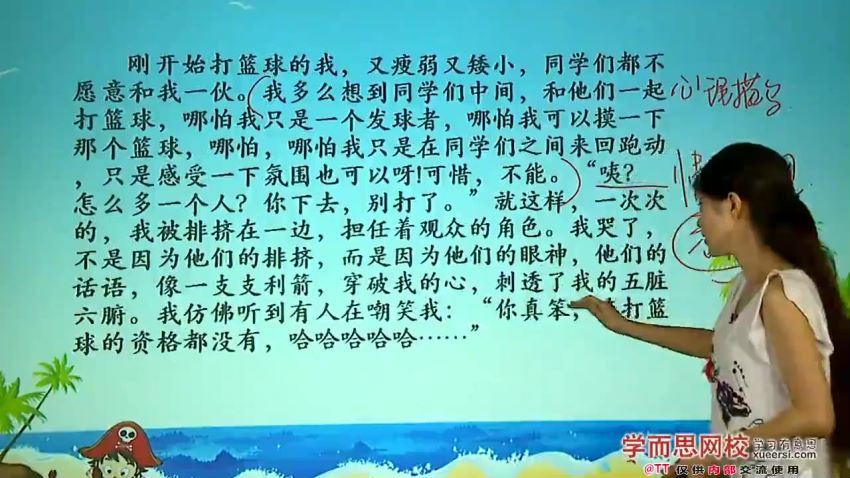 刚开始打篮球的我，又瘦弱又矮小，同学们都不
愿意和我一伙。我多么想到同学们中间，和他们一起
打篮球，哪怕我只是一个发球者，哪怕我可以摸一下
那个篮球，哪怕，哪怕我只是在同学们之间来回跑动
，只是感受一下氛围也可以呀!可惜，不能。“咦？
怎么多一个人？你下去，别打了。”就这样，一次次
的，我被排挤在一边，担任着观众的角色。我哭了，
不是因为他们的排挤，而是因为他们的眼神，他们的
话语，像一支支利箭，穿破我的心，刺透了我的五脏
六腑。我仿佛听到有人在嘲笑我：“你真笨，打篮
球的资格都没有，哈哈哈哈哈……”
心理描写
学而思网校
学习有意思
xueersi.com
@TT 仅供内部交流使用